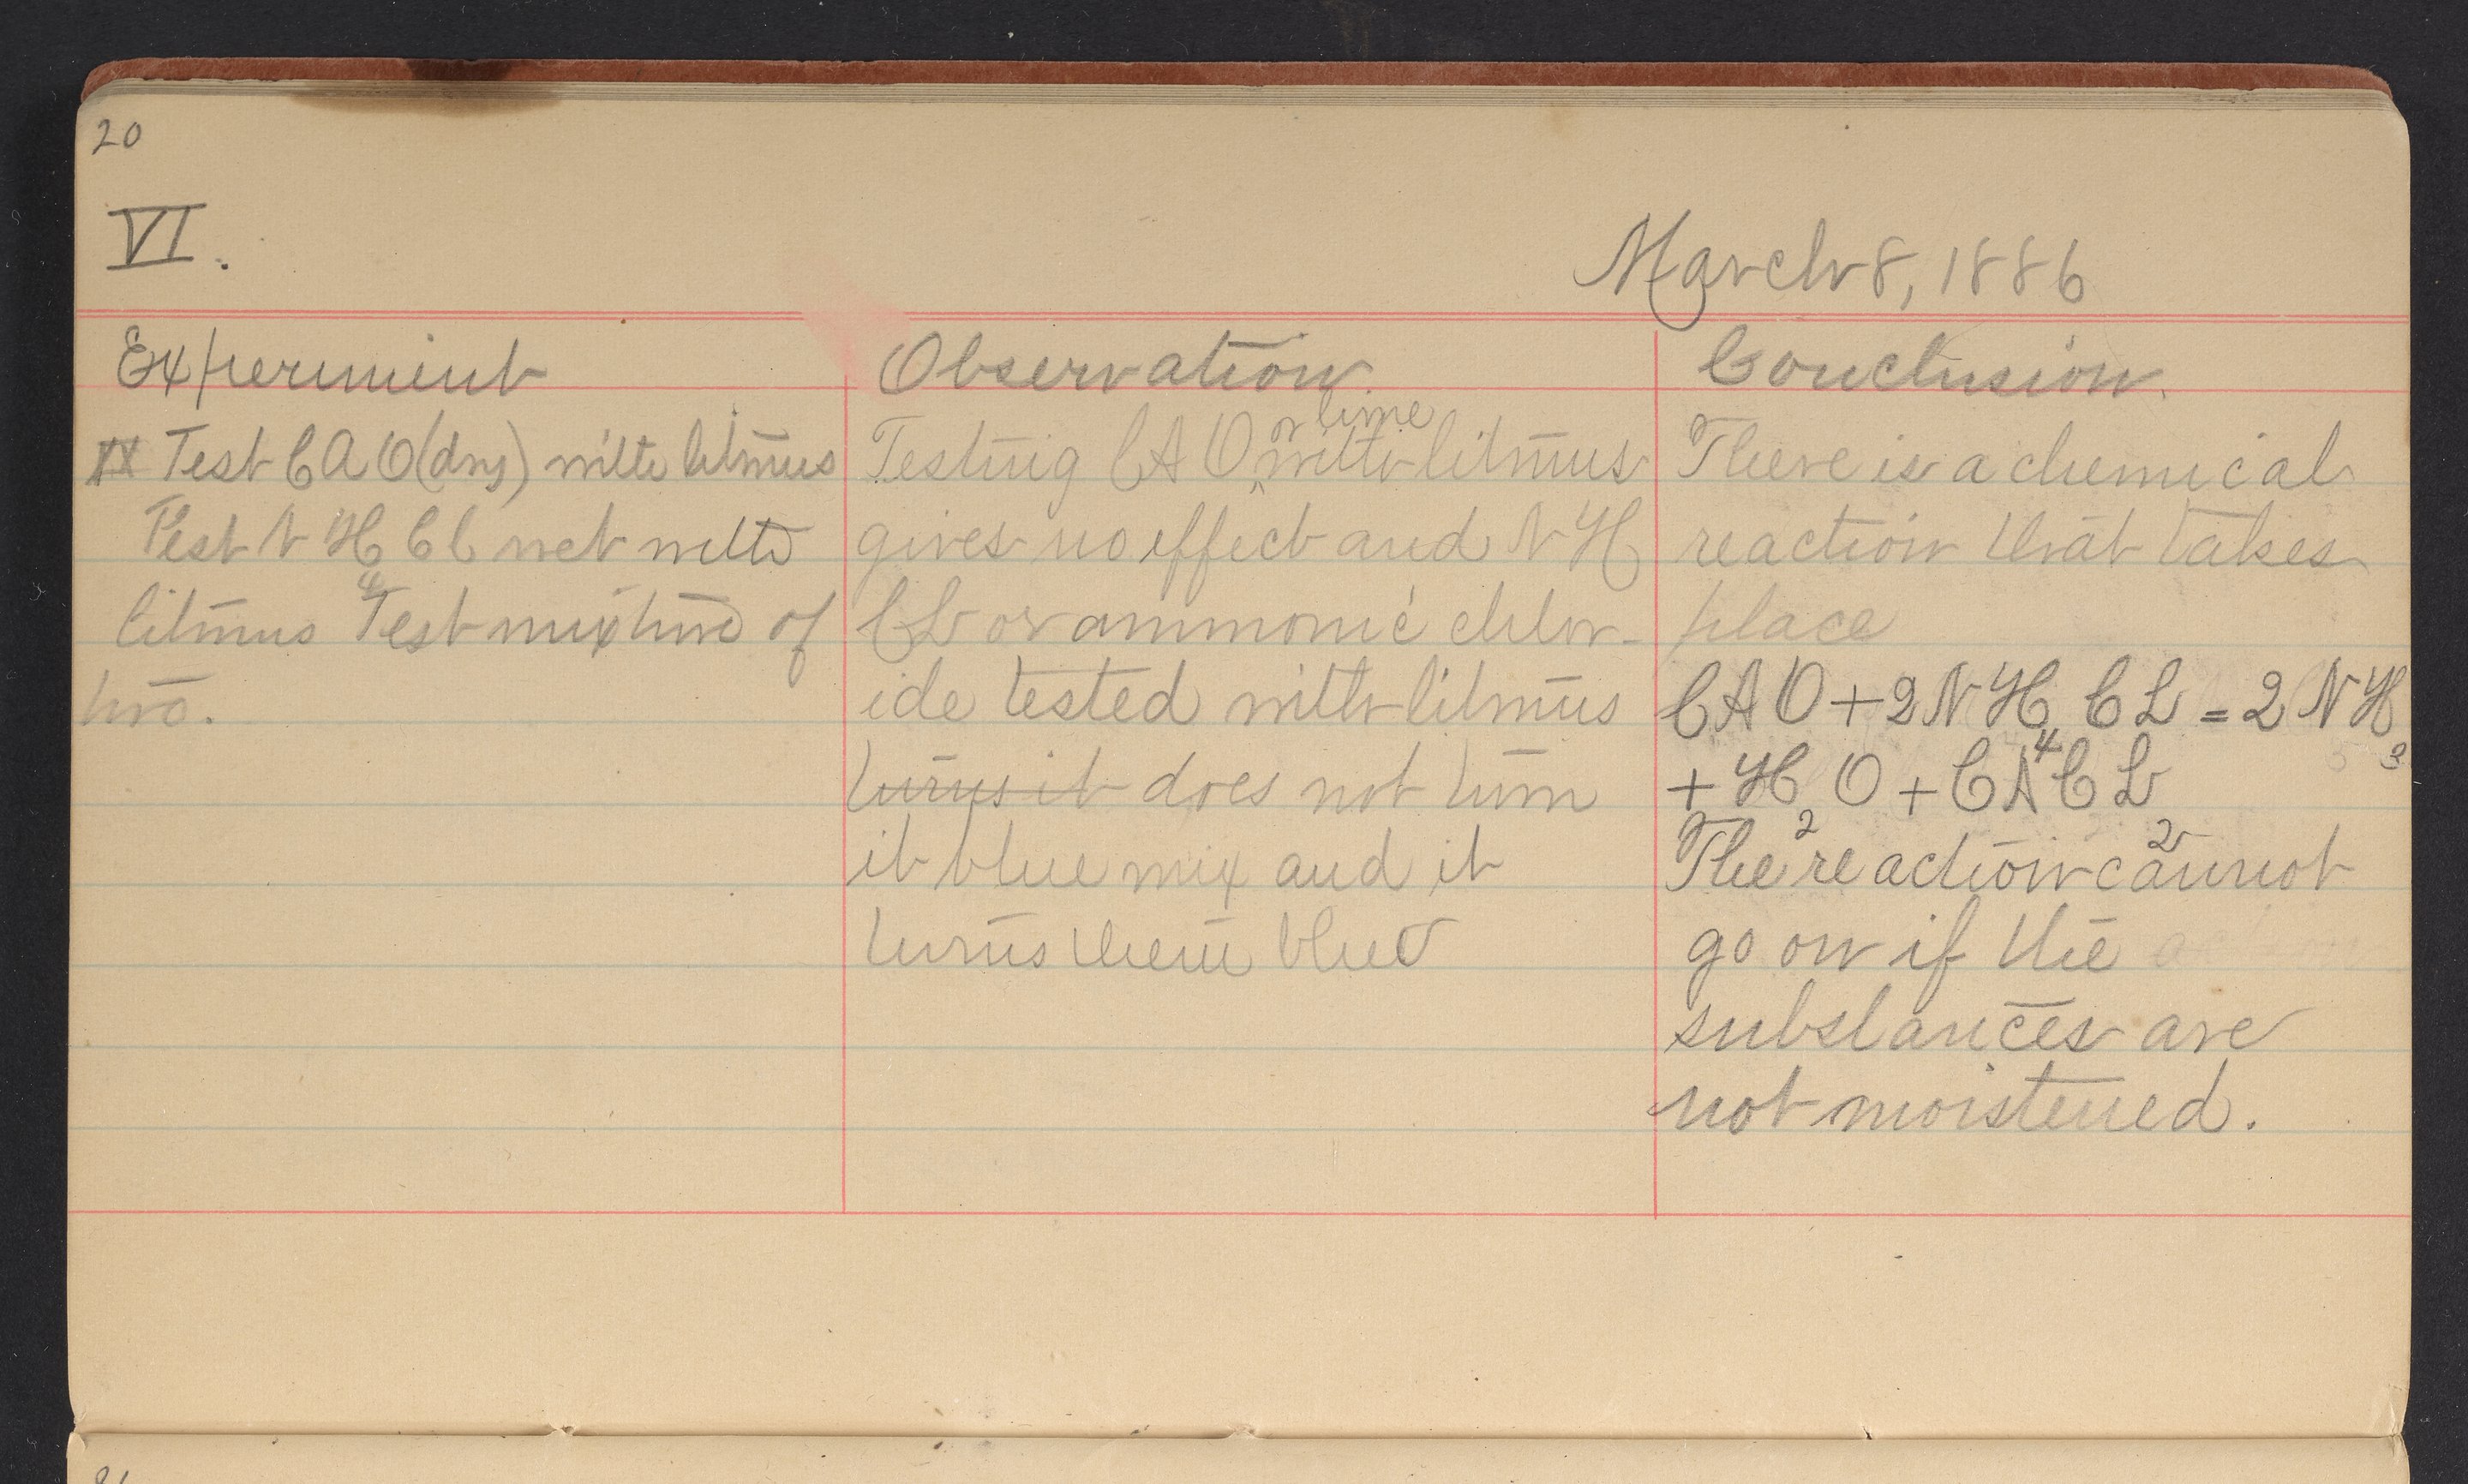 20
VI.
March 8, 1886
Experiment
XX Test CAO (dry) with litmus
Test NH4Cl wet with
litmus Test mixture of
two.
Observation.
Testing CAO or lime with litmus
gives no effect and NH
CL or ammonic chlor-
ide tested with litmus
turns it does not turn
it blue mix and it
turns them blue
Conclusion.
There is a chemical
reaction that takes
place
CAO + 2NH4CL = 2NH3
+ H2O + CACL2
The reaction cannot
go on if the
substances are
not moistened.